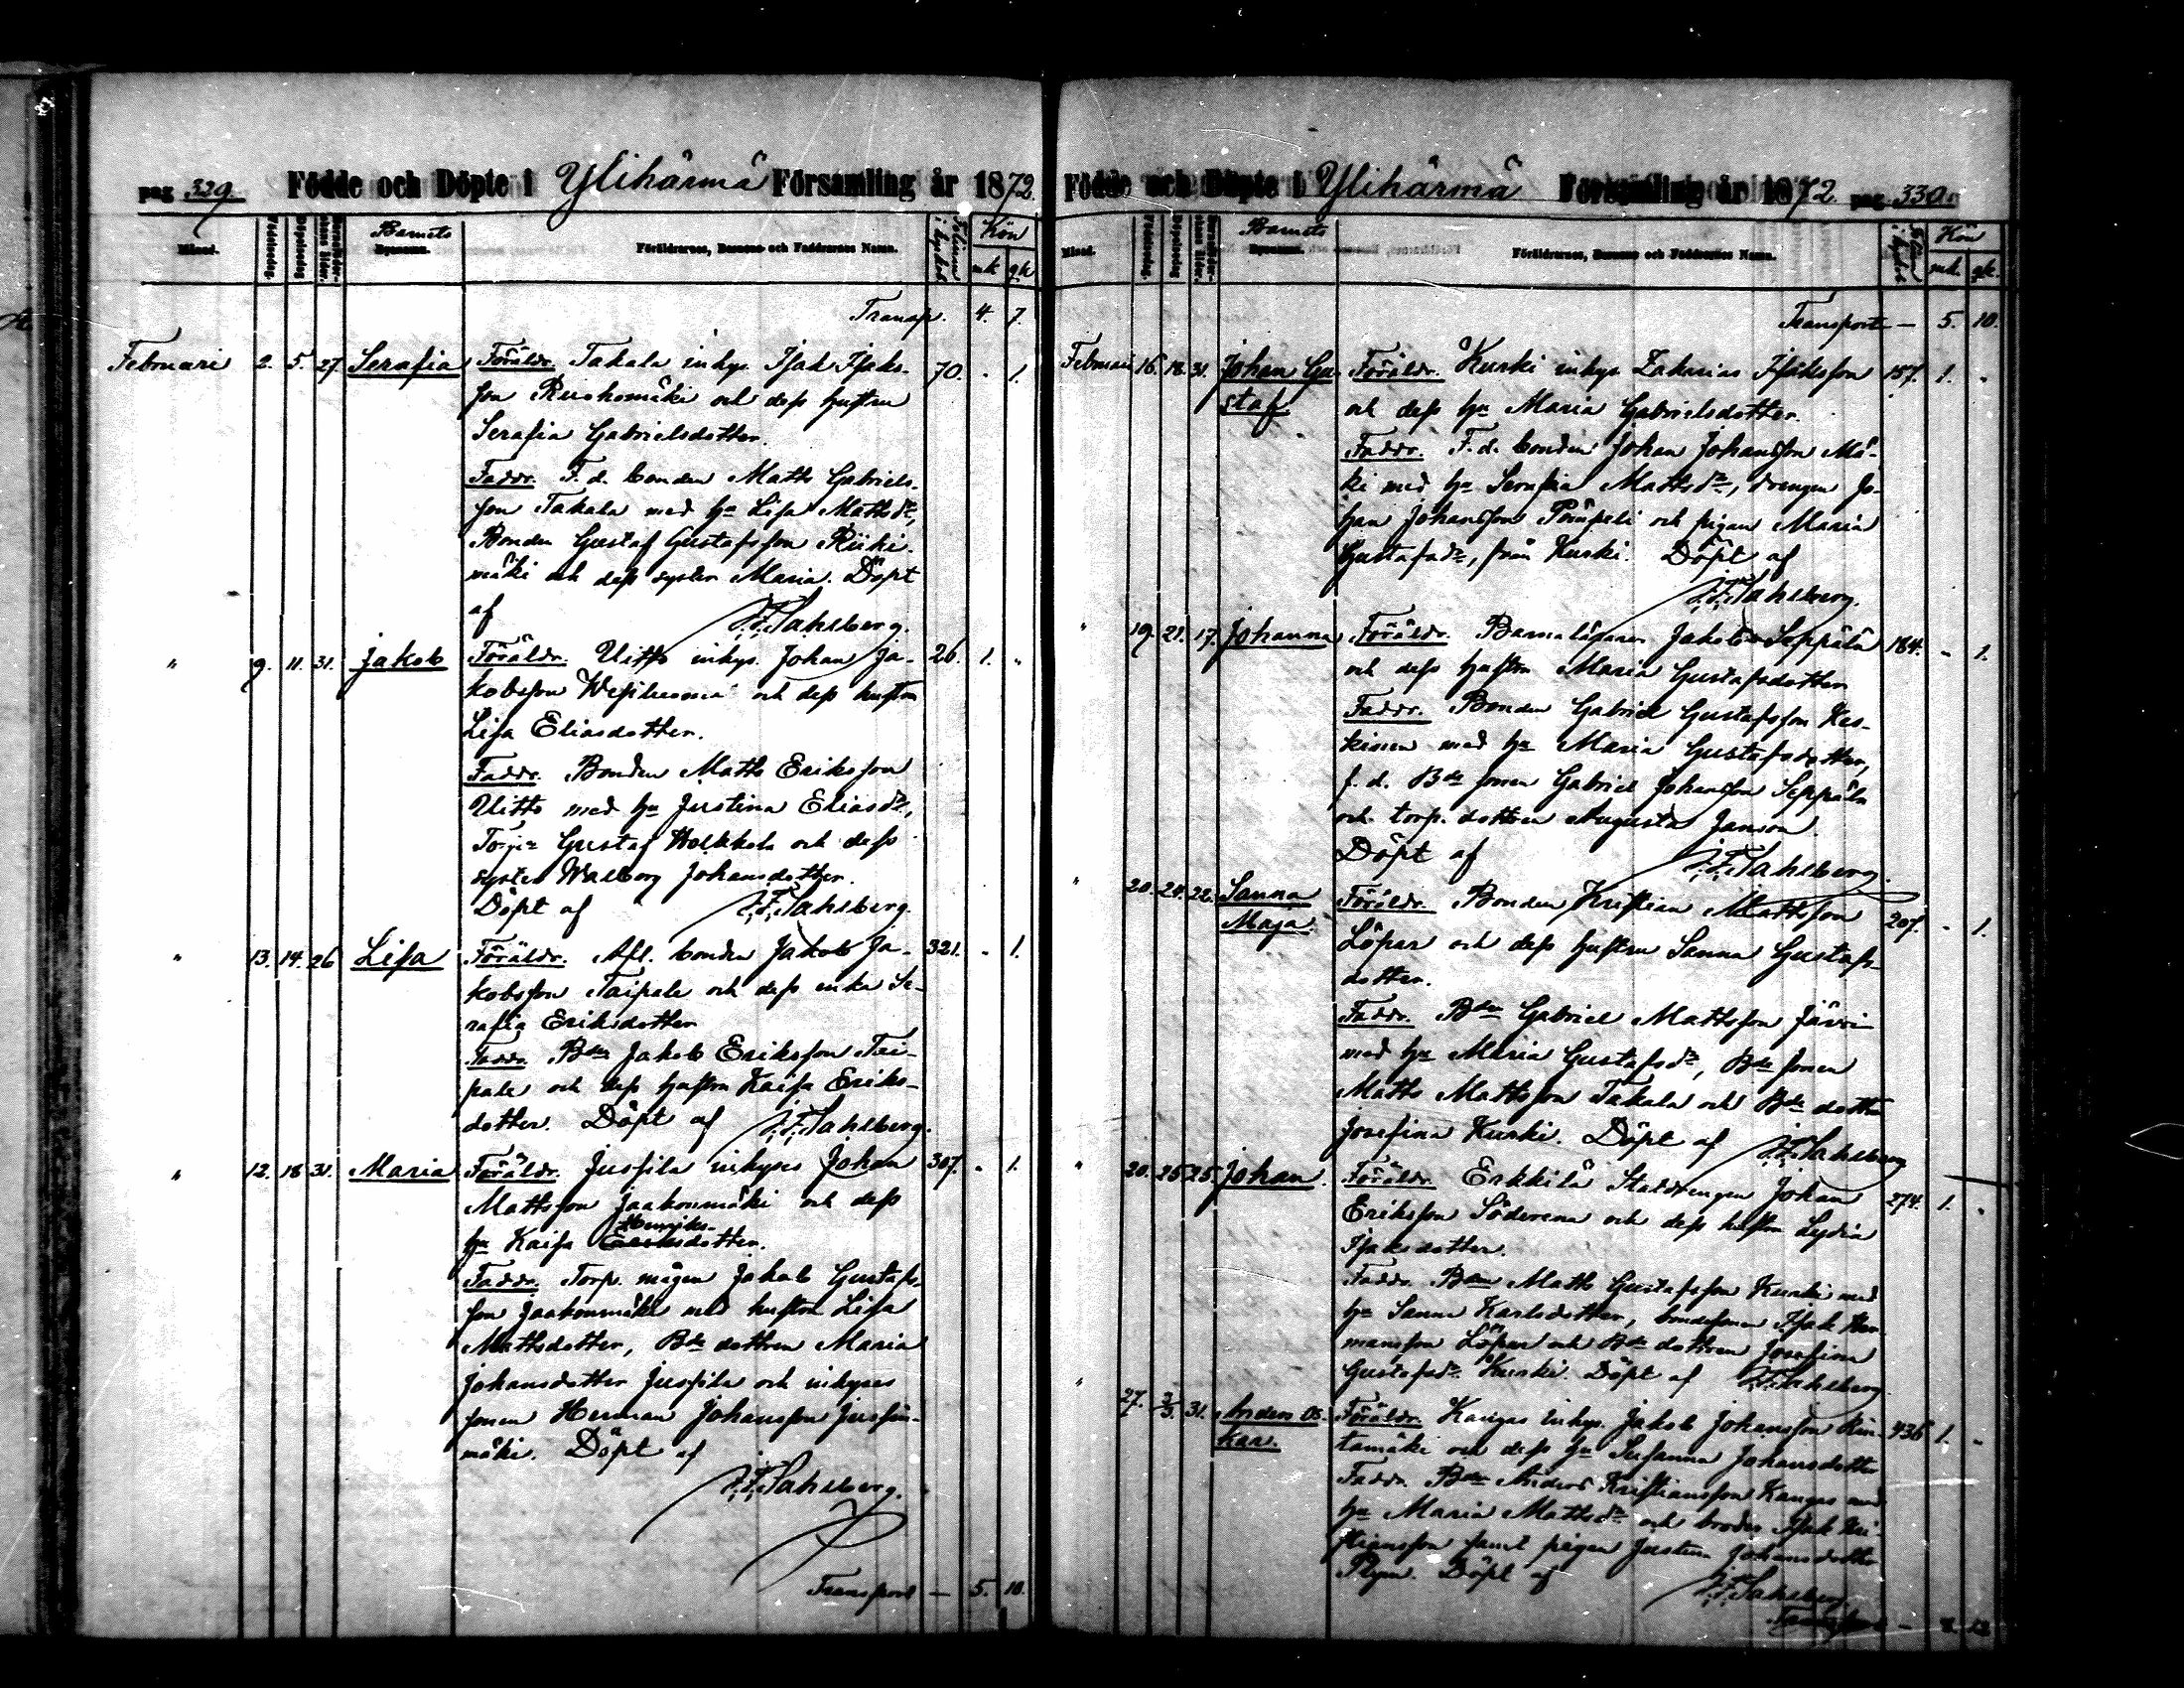 pag 329. Födde och Döpte i Ylihärmä Församling år 1872.
Månad. Födelsedag. Döpelsedag Barnets Föräldrarnes, Barnens och Faddrarnes Namn. Kön
mk qk
Transp. 4. 7.
Februari 2. 5. 27 Serafia Föräldr. Takala inhys. Isak Isaks- 70. " 1.
son och dess hustru
Serafia Gabrielsdotter.
Faddr. F. d. bonden Matts Gabriels-
son Takala med hu Lisa Mattsdr,
Bonden Gustaf Gustafsson Riiki-
mäki och dess syster Maria. Döpt
af J. F. Sahlberg.
" 9. 11. 31. Jakob Föräldr. Uitto inhys. Johan Ja- 26. 1. "
kobsson och dess hustru
Lisa Eliasdotter.
Faddr. Bonden Matts Eriksson
Uitto med hu Justina Eliasdr,
Gustaf och dess
syster Walborg Johansdotter.
Döpt af J. F. Sahlberg.
" 13. 14. 26 Lisa Föräldr. Afl. bonden Jakob Ja- 321. " 1.
kobsson Taipale och dess enka Se-
rafia Eriksdotter
Faddr. Bdn Jakob Eriksson Tai-
pale och dess hustru Kaisa Eriks-
dotter. Döpt af J. F. Sahlberg.
" 12. 18 31. Maria Föräldr. Jussila inhyses Johan 307. " 1.
Mattsson Jaakonmäki och dess
Henriks-
hu Kaisa Eriksdotter.
Faddr. Torp. mågen Jakob Gustafs-
son Jaakonmäki med hustru Lisa
Mattsdotter, Bde dottren Maria
Johansdotter Jussila och inhyses
sonen Herman Johansson
mäki. Döpt af
J. F. Sahlberg.
Transport — 5. 10.
Födde och Döpte i Ylihärmä Församling år 1872. pag 330
Månad. Födelsedag. Döpelsedag. Barnets Föräldrarnes, Barnens och Faddrarnes Namn. Kön
mk. qk.
Transport — 5. 10.
Februari 16. 18. 31. Johan Gu- Föräldr. Kurki inhys. Zakarias Isaksson 157. 1. "
staf och dess hu Maria Gabrielsdotter.
Faddr. F. d. bonden Johan Johansson Mä-
ki med hu Serafia Mattsdr, drengen Jo-
han Johansson och pigan Maria
Gustafsdr, från Kurki. Döpt af
J. F. Sahlberg.
" 19. 21. 17. Johanna Föräldr. Jakob Seppälä 184. " 1.
och dess hustru Maria Gustafsdotter
Faddr. Bonden Gabriel Gustafsson Kes-
kinen med hu Maria Gustafsdotter,
f. d. Bde sonen Gabriel Johansson Seppälä
och torp. dottren Augusta Janson
Döpt af J. F. Sahlberg.
" 20. 24. 22. Sanna Föräldr. Bonden Kristian Mattsson 207. " 1.
Maja. Löpar och dess hustru Sanna Gustafs-
dotter.
Faddr. Bdn Gabriel Mattsson Järvi
med hu Maria Gustafsdr, Bde sonen
Matts Mattsson Takala och Bde dottren
Josefina Kurki. Döpt af J. F. Sahlberg
" 20. 25. 25. Johan. Föräldr. Erkkilä Staldrengen Johan 274. 1. "
Eriksson och dess hustru Lydia
Isaksdotter.
Faddr. Bdn Matts Gustafsson Kurki med
hu Sanna Karlsdotter, bondesonen Isak Her-
mansson Löpar och Bde dottren Josefina
Gustafsdr Kurki. Döpt af J. F. Sahlberg.
" 27. 3/3. 31. Anders Os- Föräldr. Kangas inhys. Jakob Johansson Rin- 436 1. "
kar. tamäki och dess hu Susanna Johansdotter
Faddr. Bdn Anders Kristiansson Kangas med
hu Maria Mattsdr och broder Isak Kri-
stiansson samt pigan Justina Johansdotter
Döpt af
J. F. Sahlberg.
Transport — 8. 12